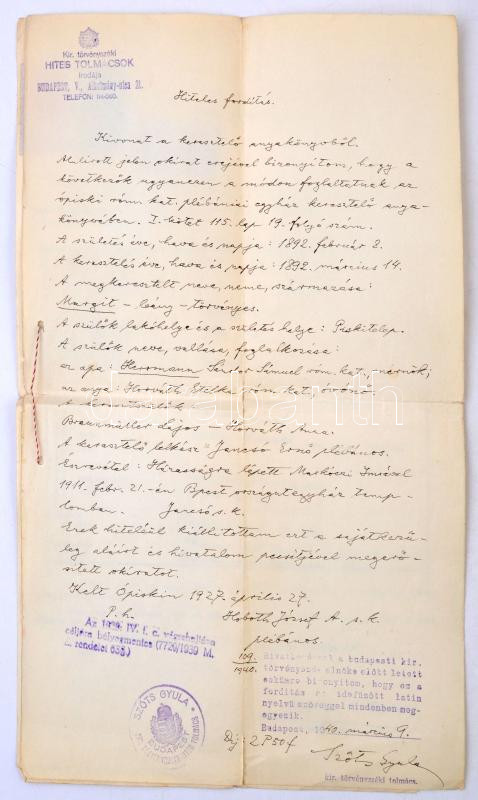 Kir. törvényszéki
HITES TOLMÁCSOK
irodája
BUDAPEST, V., Alkotmány-utca
TELEFON:
Hiteles fordítás.
Kivonat a keresztelő anyakönyvből.
Alulírott jelen okirat erejével bizonyítom, hogy a
következők ugyanezen a módon foglaltatnak az
ópiski róm. kat. plébániai egyház keresztelő anya-
könyvében. I. kötet 115. lap 19. folyó szám.
A születés éve, hava és napja: 1892. február 2.
A keresztelés éve, hava és napja: 1892. március 14.
A megkeresztelt neve, neme, származása:
Margit – leány – törvényes.
A szülők lakóhelye és a születés helye: Piskitelep.
A szülők neve, vallása, foglalkozása:
az apa: Herrmann Sándor Sámuel róm. kat., mérnök;
az anya: Horváth Etelka róm. kat., óvónő
A keresztszülők
Braunmüller Lajos – Horváth Anna.
A keresztelő lelkész: Jancsó Ernő plébános.
Észrevétel: Házasságra lépett Imrével
1911. febr. 21.-én Bpest országút egyház temp-
lomban. Jancsó s. k.
Ezek hiteléül kiállítottam ezt a sajátkezű-
leg aláírt és hivatalom pecsétjével megerő-
sített okiratot.
Kelt Ópiskin 1927. április 27.
P. h. Hoboth József A. s. k.
plébános.
Az 1939. IV. t. c. végrehajtása
céljára bélyegmentes (7720/1939 M.
E. rendelet 63§)
109
1940.
Hivatkozással a budapesti kir.
törvényszék elnöke előtt letett
eskümre bizonyítom, hogy ez a
fordítás az idefűzött latin
nyelvű szöveggel mindenben meg-
egyezik.
Budapest, 1940. március 9.
SZŐTS GYULA
BUDAPEST
Díj 2 P 50 f
Szőts Gyula
kir. törvényszéki tolmács.